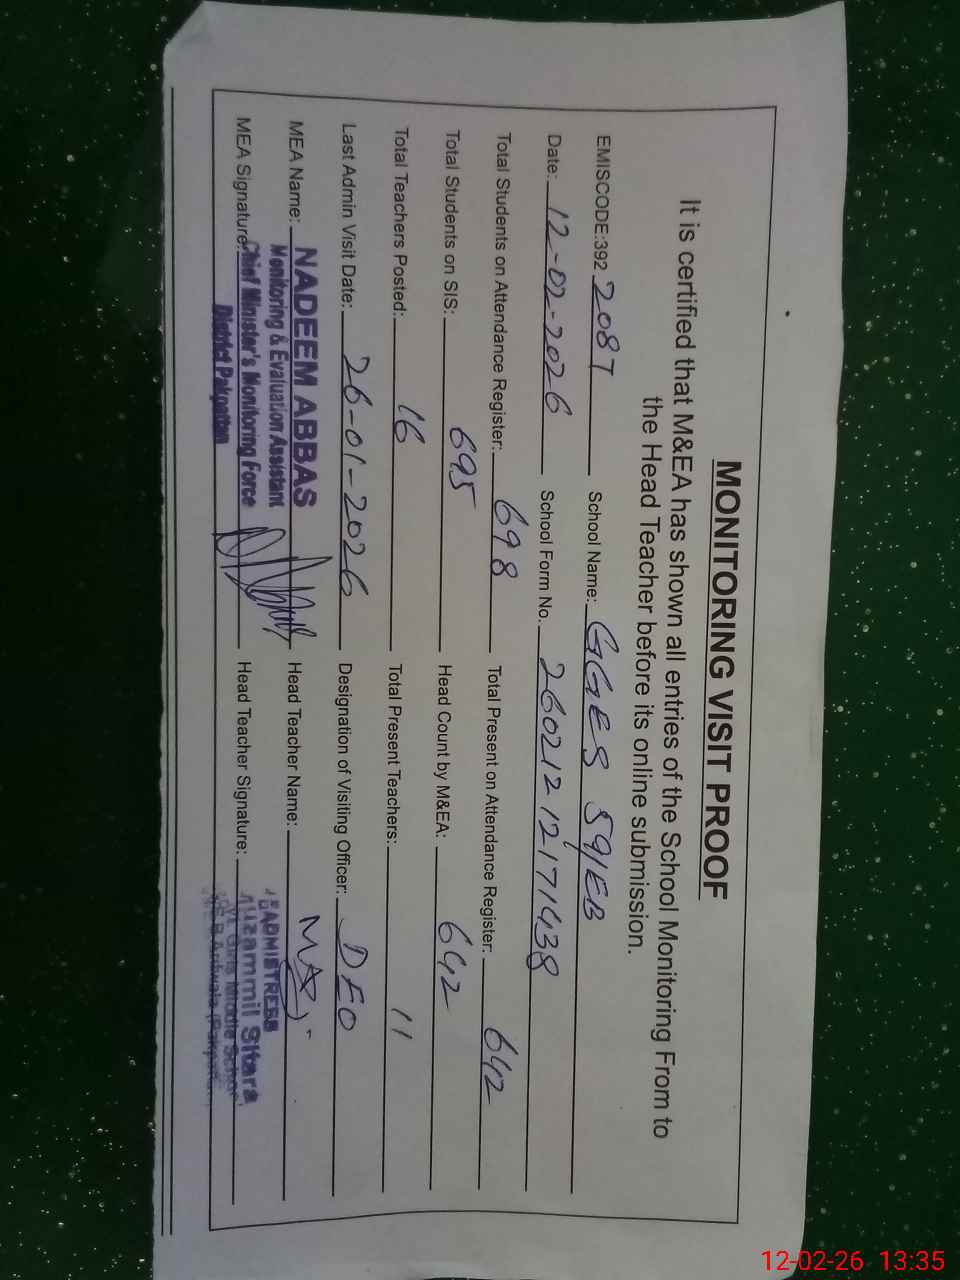 MONITORING VISIT PROOF
It is certified that M&EA has shown all entries of the School Monitoring From to
the Head Teacher before its online submission.
EMISCODE:392 2087 School Name: GGES 59/EB
Date: 12-02-2026 School Form No. 26021212171438
Total Students on Attendance Register: 698 Total Present on Attendance Register: 642
Total Students on SIS: 695 Head Count by M&EA: 642
Total Teachers Posted: 16 Total Present Teachers: 11
Last Admin Visit Date: 26-01-2026 Designation of Visiting Officer: DEO
MEA Name: NADEEM ABBAS Head Teacher Name:
Monitoring & Evaluation Assistant
MEA Signature: Chief Minister's Monitoring Force Head Teacher Signature:
District Pakpattan
12-02-26 13:35